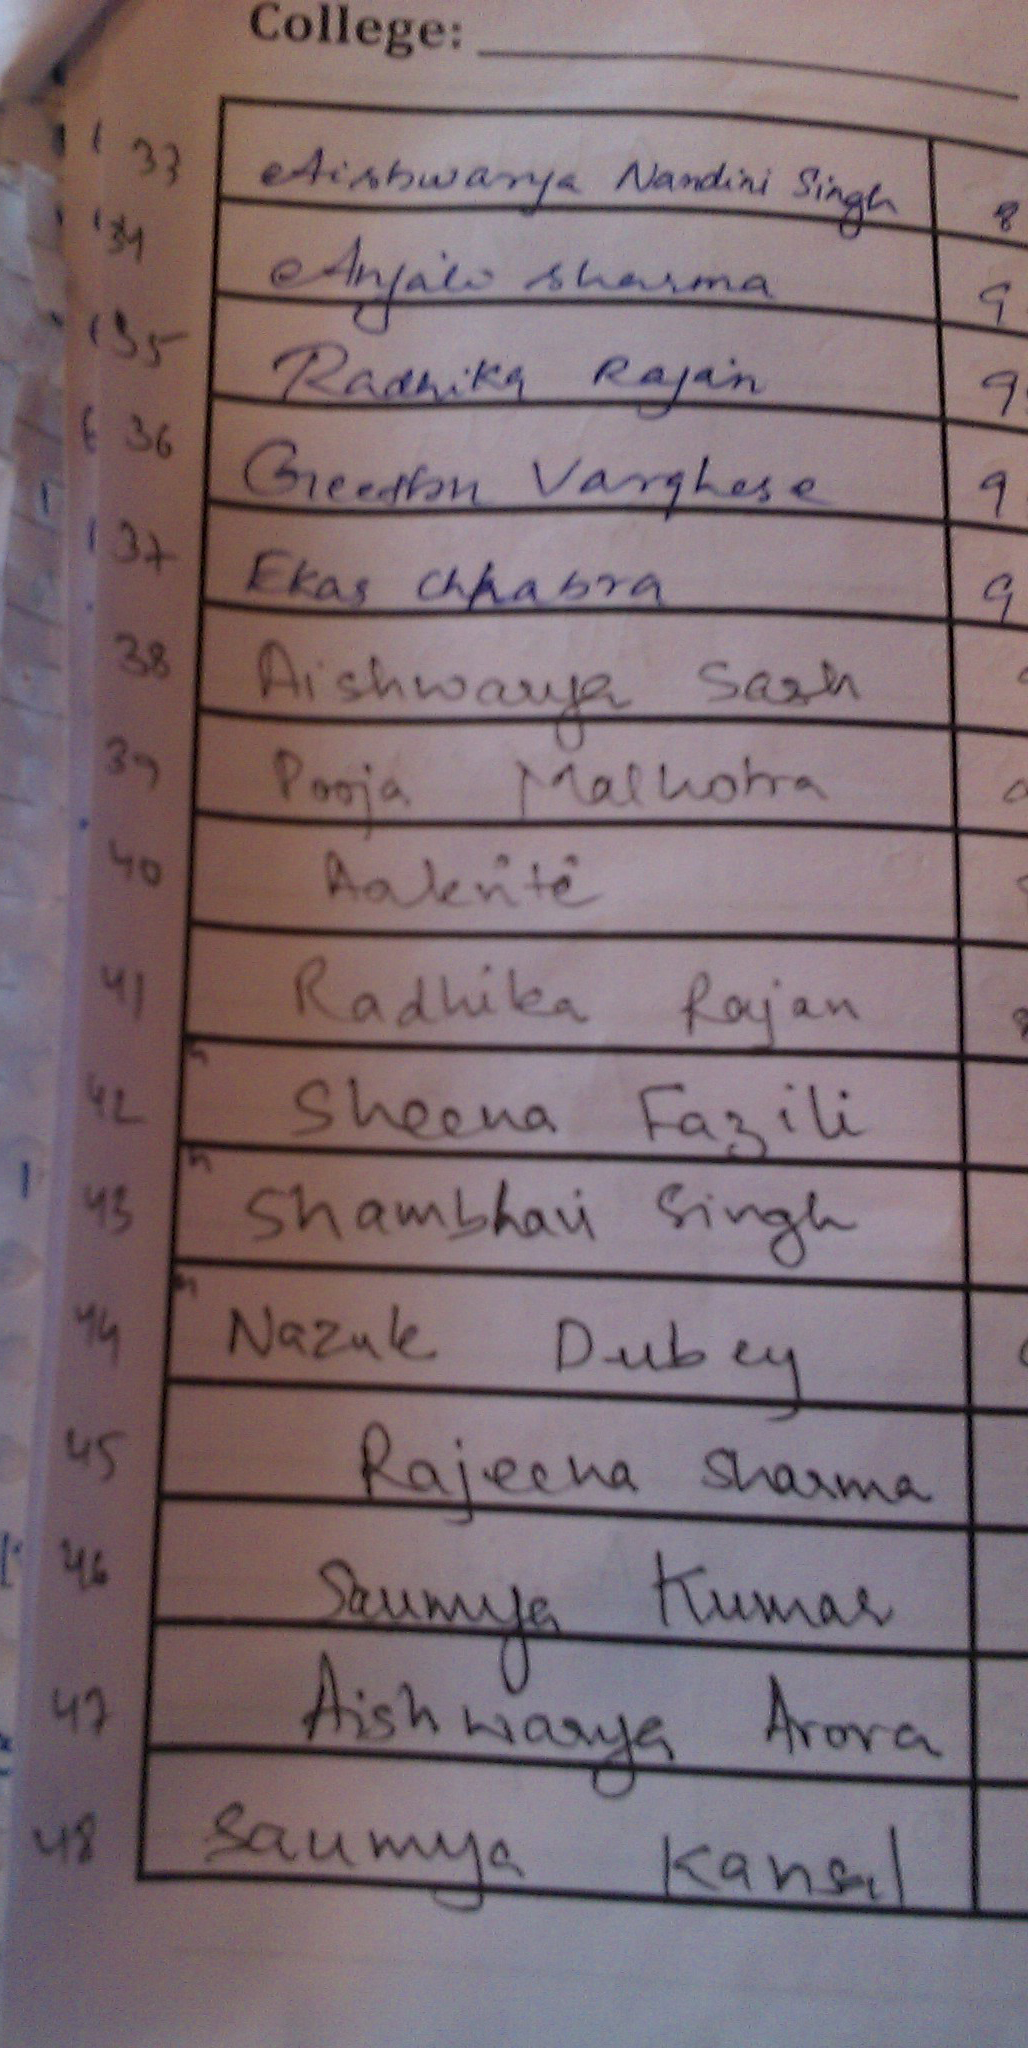 College:
33 Aishwarya Nandini Singh 8
34 Anjali Sharma 9
35 Radhika Rajan 9
36 Varghese 9
37 Ekas Chhabra 9
38 Aishwarya
39 Pooja Malhotra
40 Aakriti
41 Radhika Rajan 8
42 Sheena Fazili
43 Shambhavi Singh
44 Nazuk Dubey
45 Rajeena Sharma
46 Saumya Kumar
47 Aishwarya Arora
48 Saumya Kansal